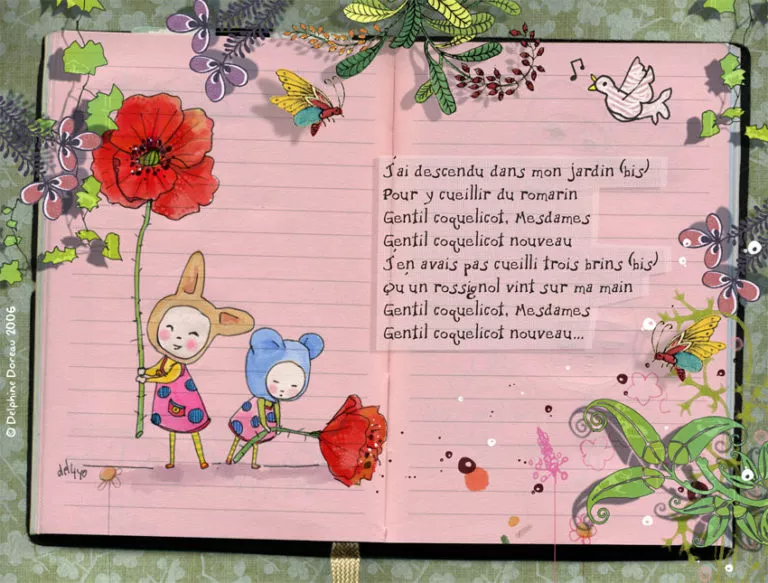 J'ai descendu dans mon jardin (bis)
Pour y cueillir du romarin
Gentil coquelicot, Mesdames
Gentil coquelicot nouveau
J'en avais pas cueilli trois brins (bis)
Qu'un rossignol vint sur ma main
Gentil coquelicot, Mesdames
Gentil coquelicot nouveau...
© Delphine Doreau 2006